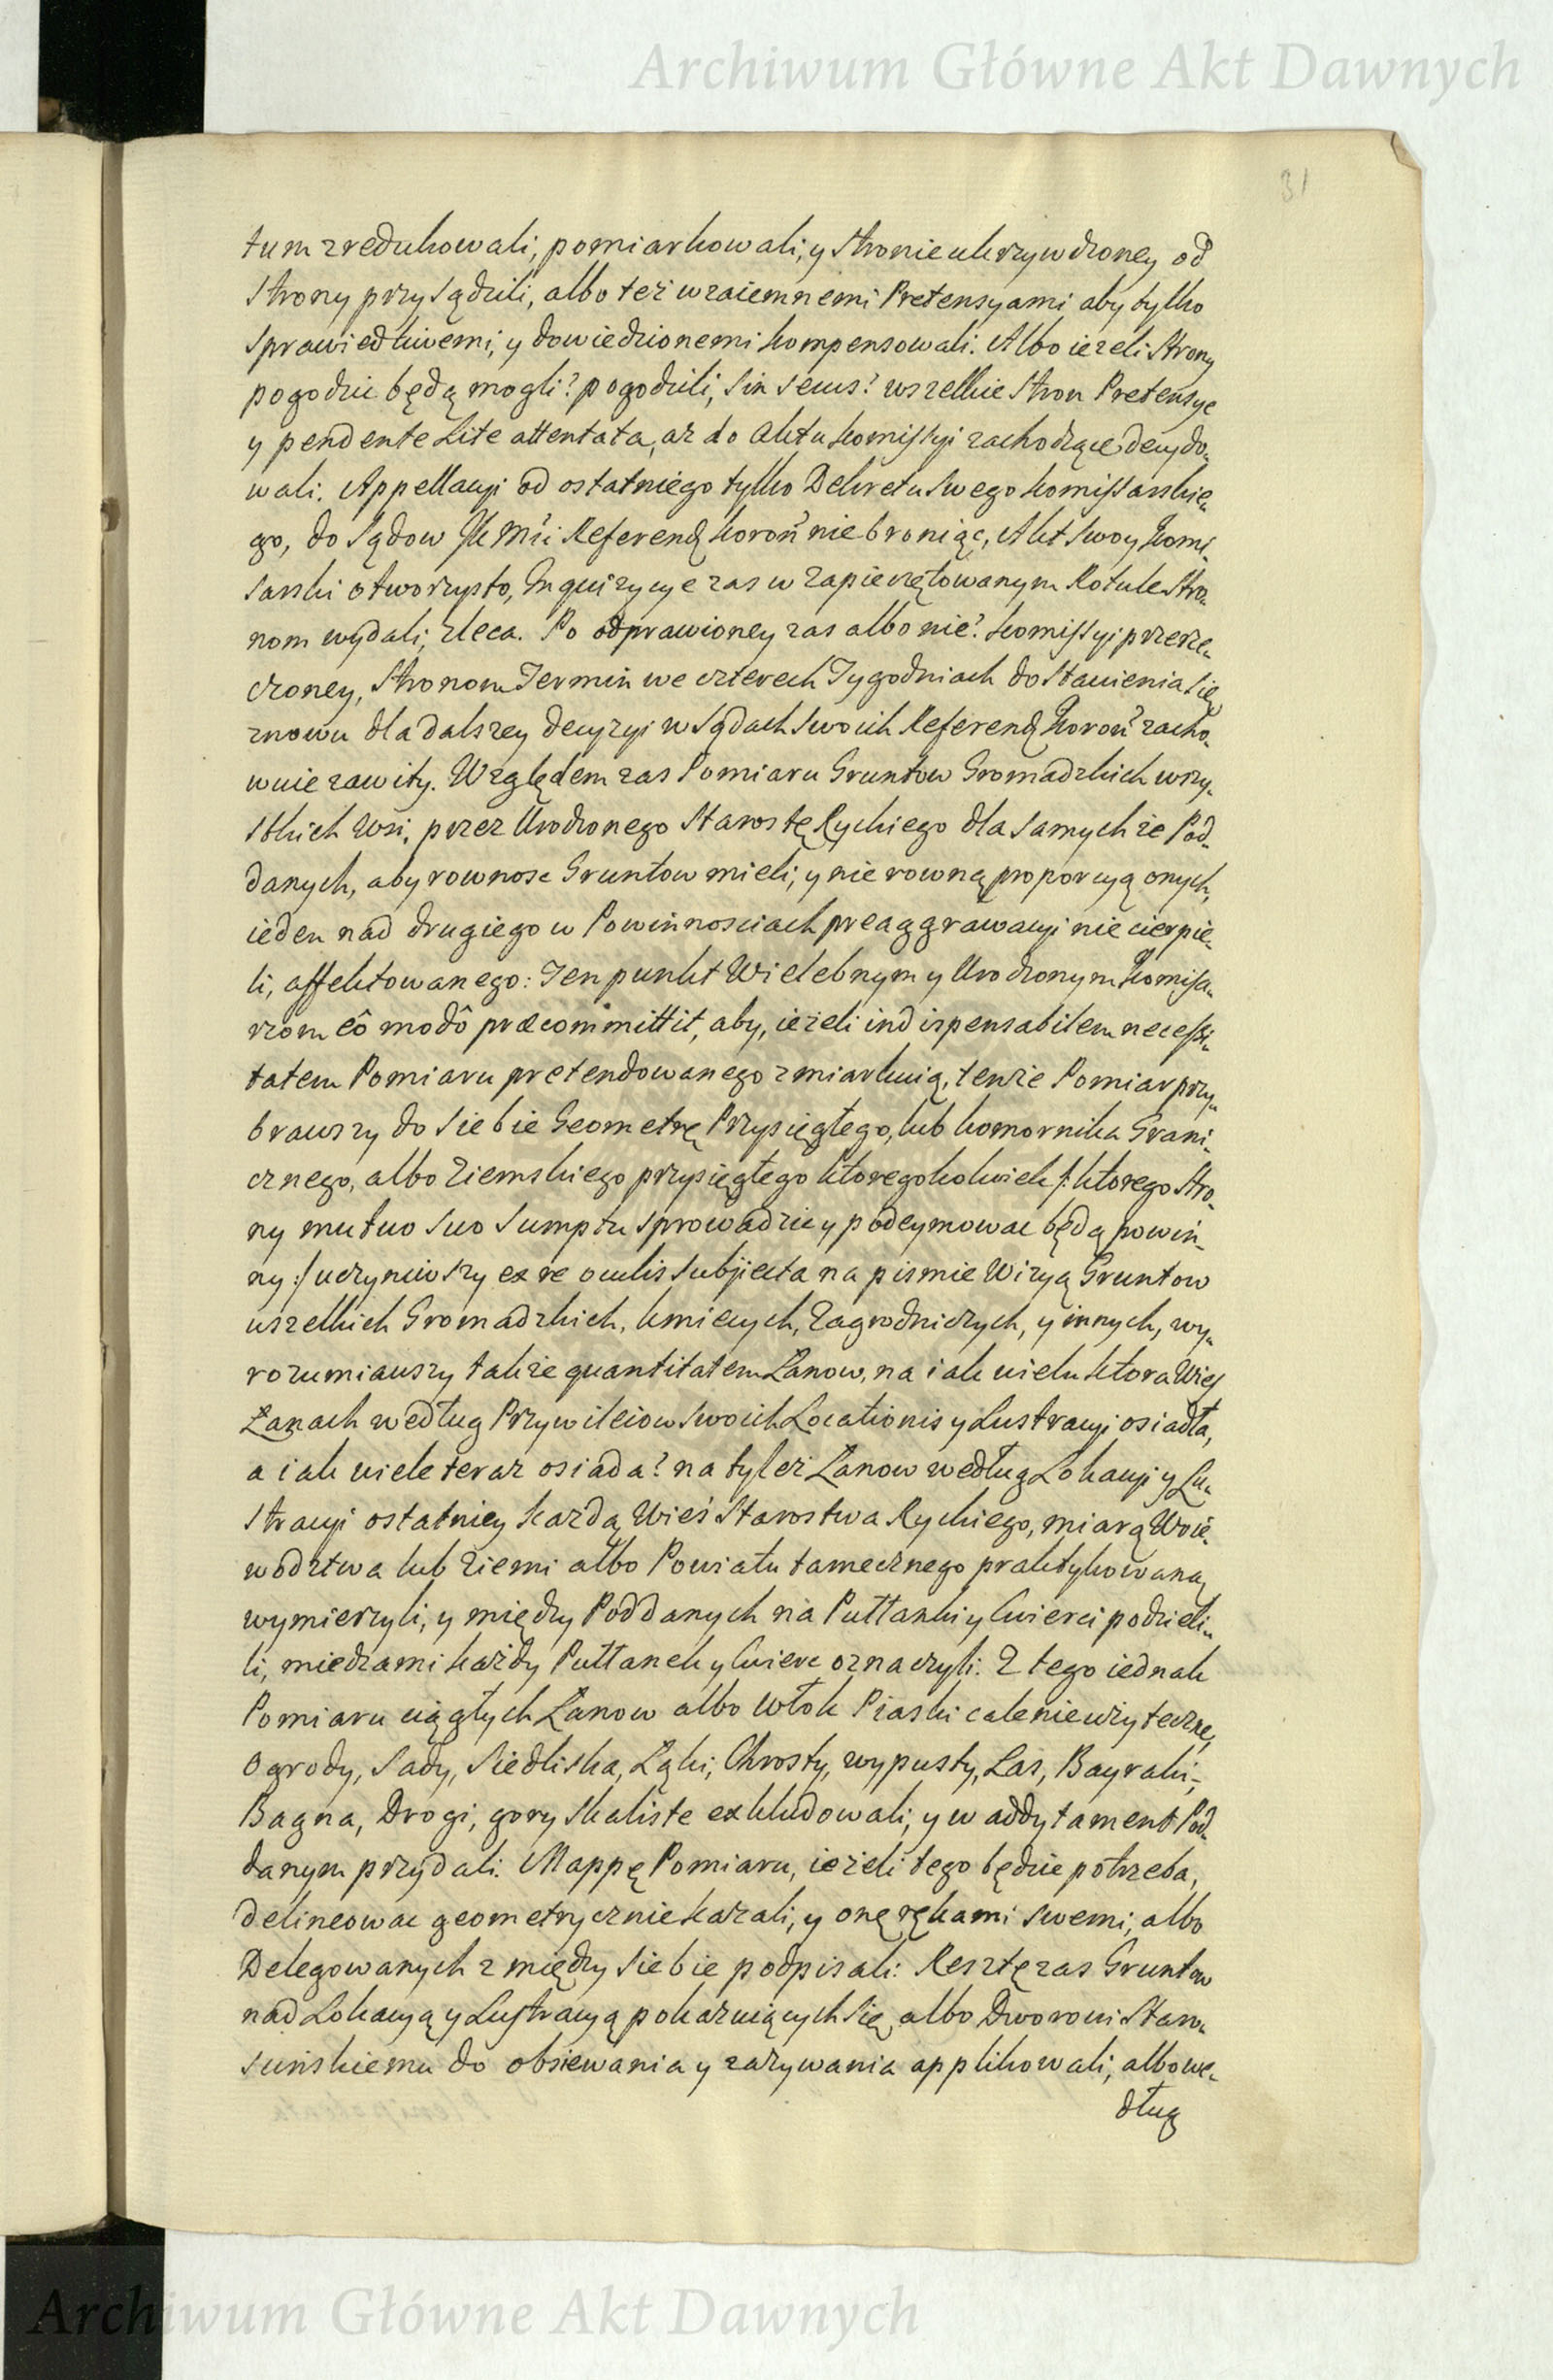 Archiwum Główne Akt Dawnych
31
tum zredukowali, pomiarkowali, y stronie ukrzywdzoney od
strony przysądzili, albo też wzaiemnemi Pretensyami aby tylko
sprawiedliwemi, y dowiedzionemi kompensowali. Albo ieżeli strony
pogodzic będą mogli? pogodzili, sin secus? wszelkie stron Pretensye
y pendente Lite attentata, aż do Aktu Komissyi zachodzące decydo„
wali. Appellacyi od ostatniego tylko Dekretu swego Komissarskie„
go, do Sądow JK Mci Referend Koron nie broniąc, Akt swoy Komi„
sarski otworzysto, Inquizycye zas w zapieczętowanym Rotule stro„
nom wydali, zleca. Po odprawioney zas albo nie? Komissyi przerze„
czoney, stronom Termin we czterech Tygodniach do stawienia się
znowu dla dalszey decyzyi w Sądach swoich Referend Koron zacho„
wuie zawity. Względem zas Pomiaru Gruntow Gromadzkich wszy„
stkich Wsi, przez Urodzonego Starostę Ryckiego dla samychże Pod„
danych, aby rownosc Gruntow mieli, y nie rowną proporcyą onych,
ieden nad drugiego w Powinnosciach preaggrawacyi nie cierpie„
li, affektowanego: Ten punkt Wielebnym y Urodzonym Komisa„
rzom eô modô præcommittit, aby, ieżeli indispensabilem necessi„
tatem Pomiaru pretendowanego zmiarkuią, tenże Pomiar przy„
brawszy do siebie Geometrę Przysięgłego, lub Komornika Grani„
cznego, albo Ziemskiego przysięgłego ktoregokolwiek /: ktorego stro„
ny mutuo suo sumptu sprowadzic y podeymowac będą powin„
ny :/ uczyniwszy ex re oculis subjecta na pismie Wizyą Gruntow
wszelkich Gromadzkich, kmiecych, Zagrodniczych, y innych, wy„
rozumiawszy także quantitatem Łanow, na iak wielu ktora Wieś
Łanach według Przywileiow swoich Locationis y Lustracyi osiadła,
a iak wiele teraz osiada? na tyleż Łanow według Lokacyi y Lu„
stracyi ostatniey każdą Wieś Starostwa Ryckiego, miarą Woie„
wodztwa lub Ziemi albo Powiatu tamecznego praktykowaną
wymierzyli, y między Poddanych na Pułłanki y Cwierci podzieli„
li, miedzami każdy Pułłanek y Cwierc oznaczyli. Z tego iednak
Pomiaru ciągłych Łanow albo Włok Piaski cale nieużyteczne,
Ogrody, Sady, Siedliska, Łąki, Chrosty, wypusty, Las, Bayraki,
Bagna, Drogi, gory skaliste exkludowali, y w addytament Pod„
danym przydali. Mappę Pomiaru, ieżeli tego będzie potrzeba,
delineowac geometrycznie kazali, y onę rękami swemi, albo
Delegowanych z między siebie podpisali: Resztę zas Gruntow
nad Lokacyą y Lustracyą pokazuiących się, albo Dworowi Staro„
scinskiemu do obsiewania y zażywania applikowali, albo we„
dług
Archiwum Główne Akt Dawnych